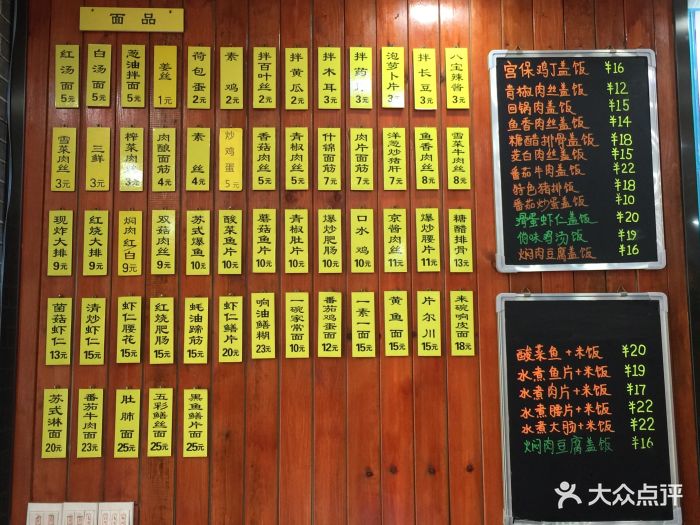 面品
红汤面 5元
白汤面 5元
葱油拌面 5元
姜丝 1元
荷包蛋 2元
素鸡 2元
拌百叶丝 2元
拌黄瓜 2元
拌木耳 3元
拌药 3元
泡萝卜片 3元
拌长豆 3元
八宝辣酱 3元
雪菜肉丝 3元
三鲜 3元
榨菜肉丝 3元
肉酿面筋 4元
素丝 4元
炒鸡蛋 5元
香菇肉丝 5元
青椒肉丝 5元
什锦面筋 7元
肉片面筋 7元
洋葱炒猪肝 7元
鱼香肉丝 8元
雪菜牛肉丝 8元
现炸大排 9元
红烧大排 9元
焖肉红白 9元
双菇肉丝 9元
苏式爆鱼 9元
酸菜鱼片 10元
蘑菇鱼片 10元
青椒肚片 10元
爆炒肥肠 10元
口水鸡 10元
京酱肉丝 11元
爆炒腰片 11元
糖醋排骨 13元
菌菇虾仁 13元
清炒虾仁 15元
虾仁腰花 15元
红烧肥肠 15元
蚝油蹄筋 15元
虾仁鳝片 20元
响油鳝糊 23元
一碗家常面 10元
番茄鸡蛋面 12元
一素一面 15元
黄鱼面 15元
片尔川 15元
来碗响皮面 18元
苏式淋面 20元
番茄牛肉面 23元
肚肺面 25元
五彩鳝丝面 25元
黑鱼鳝片面 25元
宫保鸡丁盖饭 ¥16
青椒肉丝盖饭 ¥12
回锅肉盖饭 ¥15
鱼香肉丝盖饭 ¥14
糖醋排骨盖饭 ¥18
茭白肉丝盖饭 ¥15
番茄牛肉盖饭 ¥22
特色猪排饭 ¥18
番茄炒蛋盖饭 ¥10
滑蛋虾仁盖饭 ¥20
伯味鸡汤饭 ¥19
焖肉豆腐盖饭 ¥16
酸菜鱼+米饭 ¥20
水煮鱼片+米饭 ¥19
水煮肉片+米饭 ¥17
水煮腰片+米饭 ¥22
水煮大肠+米饭 ¥22
焖肉豆腐盖饭 ¥16
大众点评